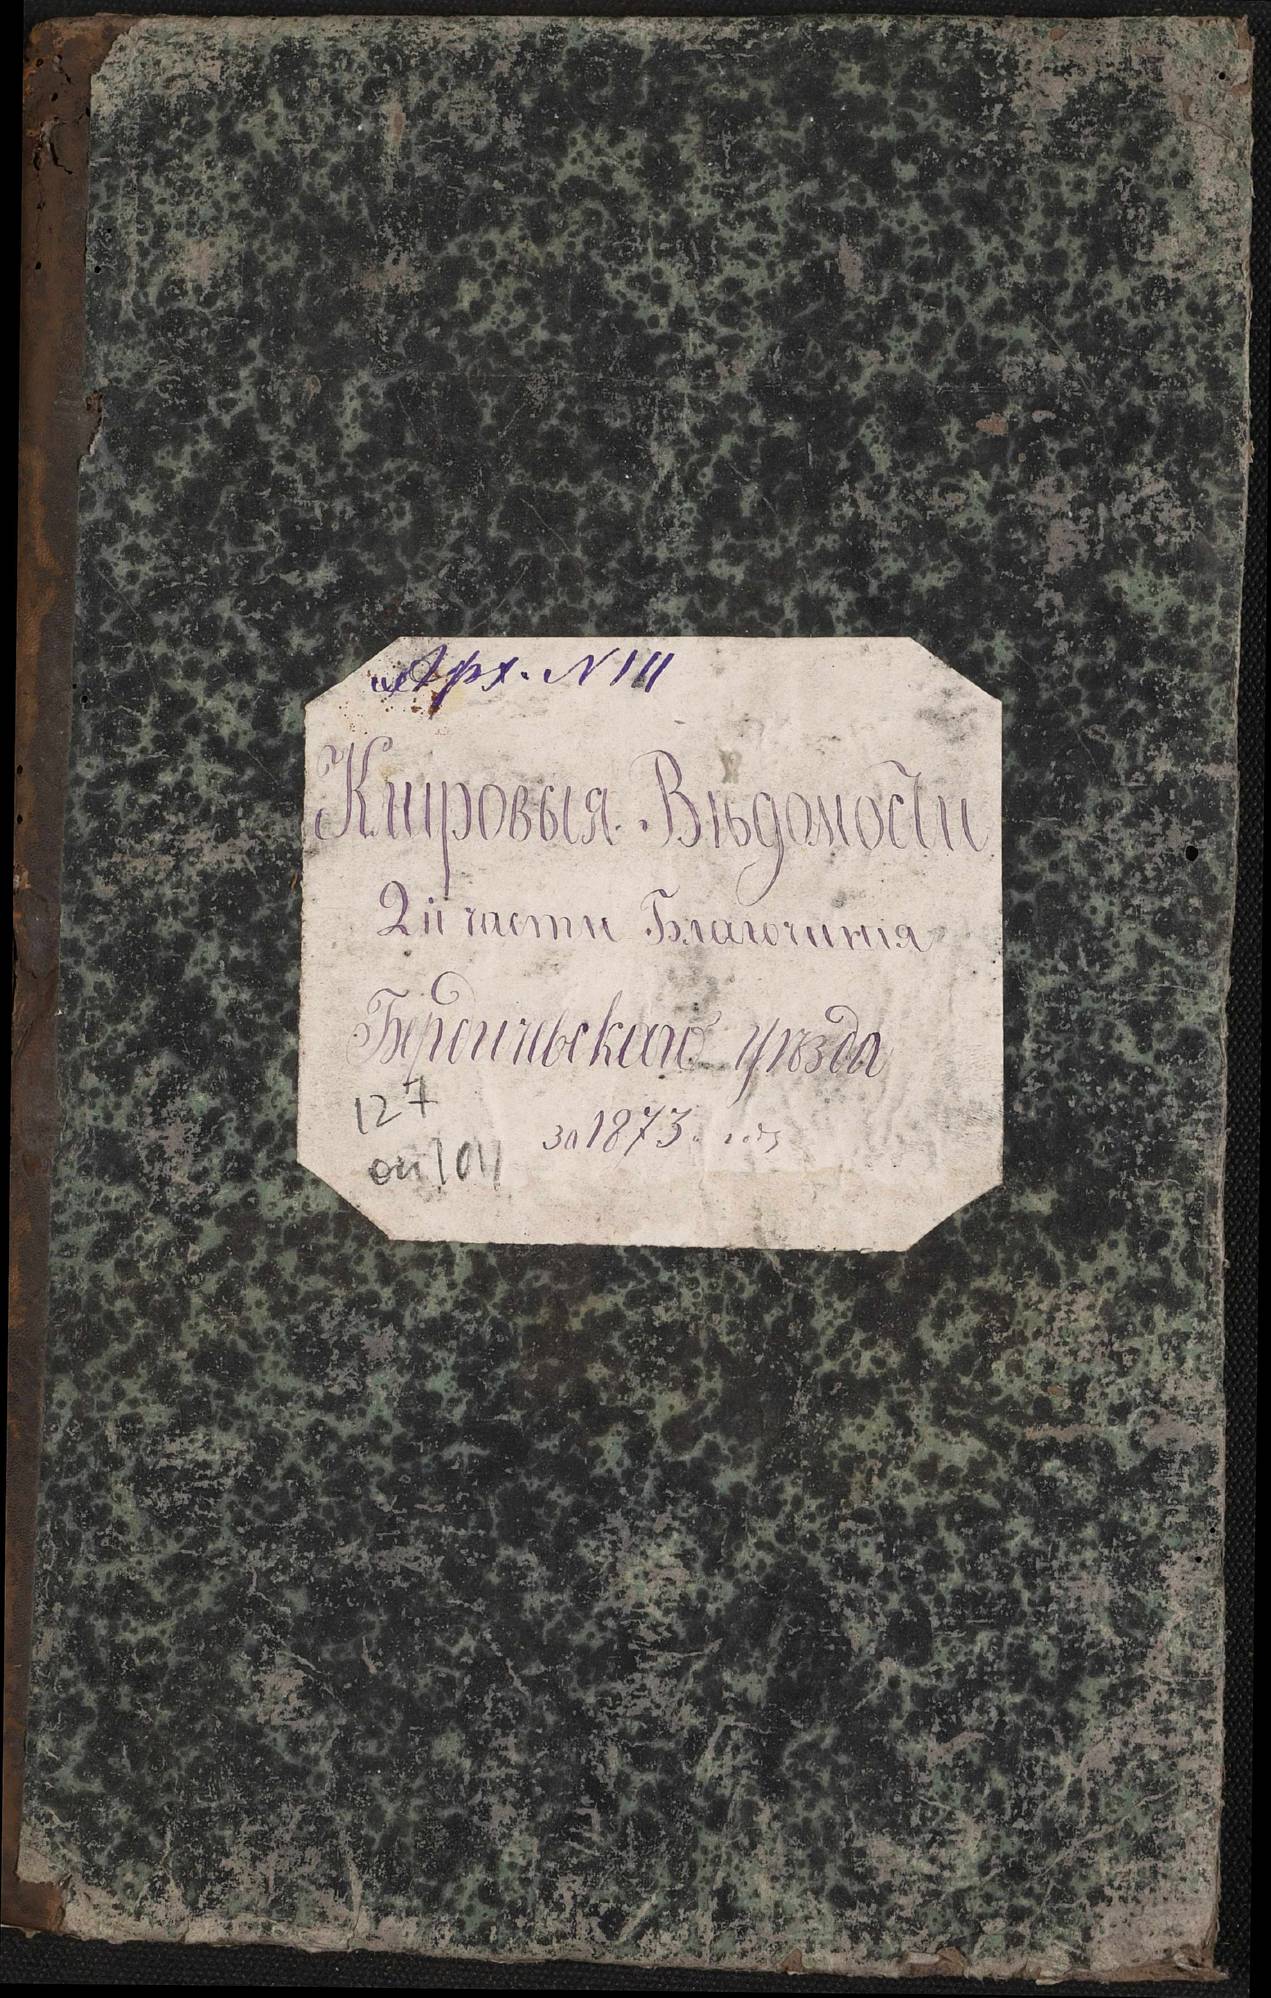 Арх. N 111
Клировыя Вѣдомости
2й части Благочинія
Бердичевскаго уѣзда
за 1873. годъ
127
оп 1011